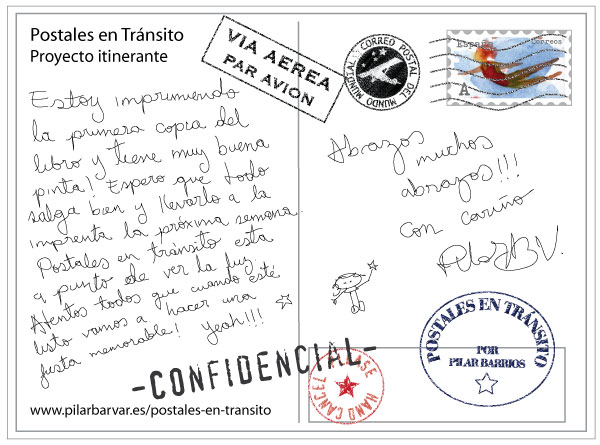 Postales en Tránsito
Proyecto itinerante
VIA AEREA
PAR AVION
CORREO POSTAL
DEL MUNDO MUNDIAL
España
Correos
A
Estoy imprimiendo
la primera copia del
libro y tiene muy buena
pinta! Espero que todo
salga bien y llevarlo a la
imprenta la próxima semana.
Postales en tránsito esta
a punto de ver la luz.
Atentos todos que cuando esté
listo vamos a hacer una
fiesta memorable! Yeah!!!
Abrazos
muchos
abrazos!!!
con cariño
PilarBV.
-CONFIDENCIAL-
PLEASE
HAND CANCEL
POSTALES EN TRÁNSITO
POR
PILAR BARRIOS
www.pilarbarvar.es/postales-en-transito